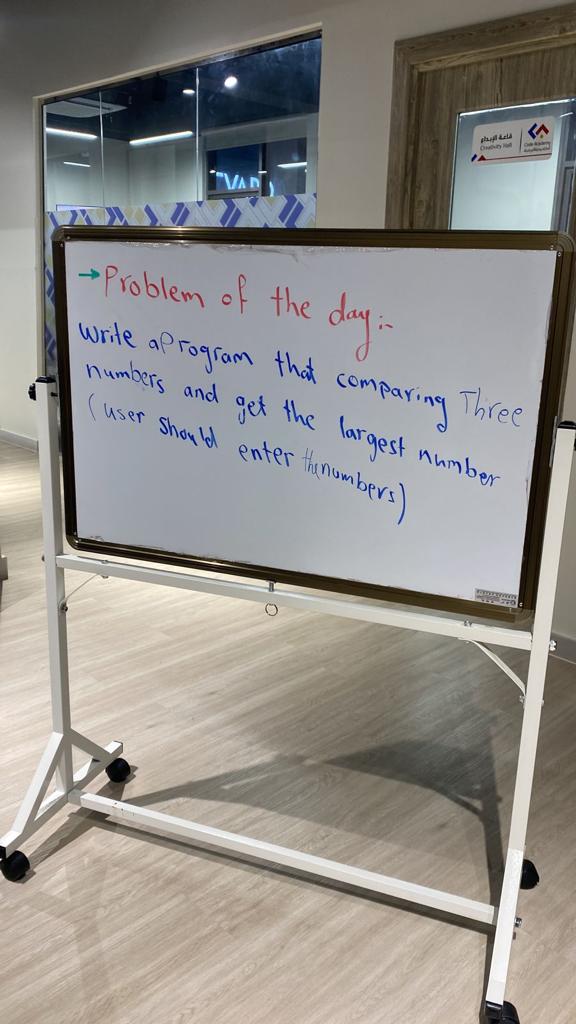 VARO
قاعة الإبداع
Creativity Hall
Code Academy
→Problem of the day:-
write a Program that comparing Three
numbers and get the largest number
(user should enter the numbers)